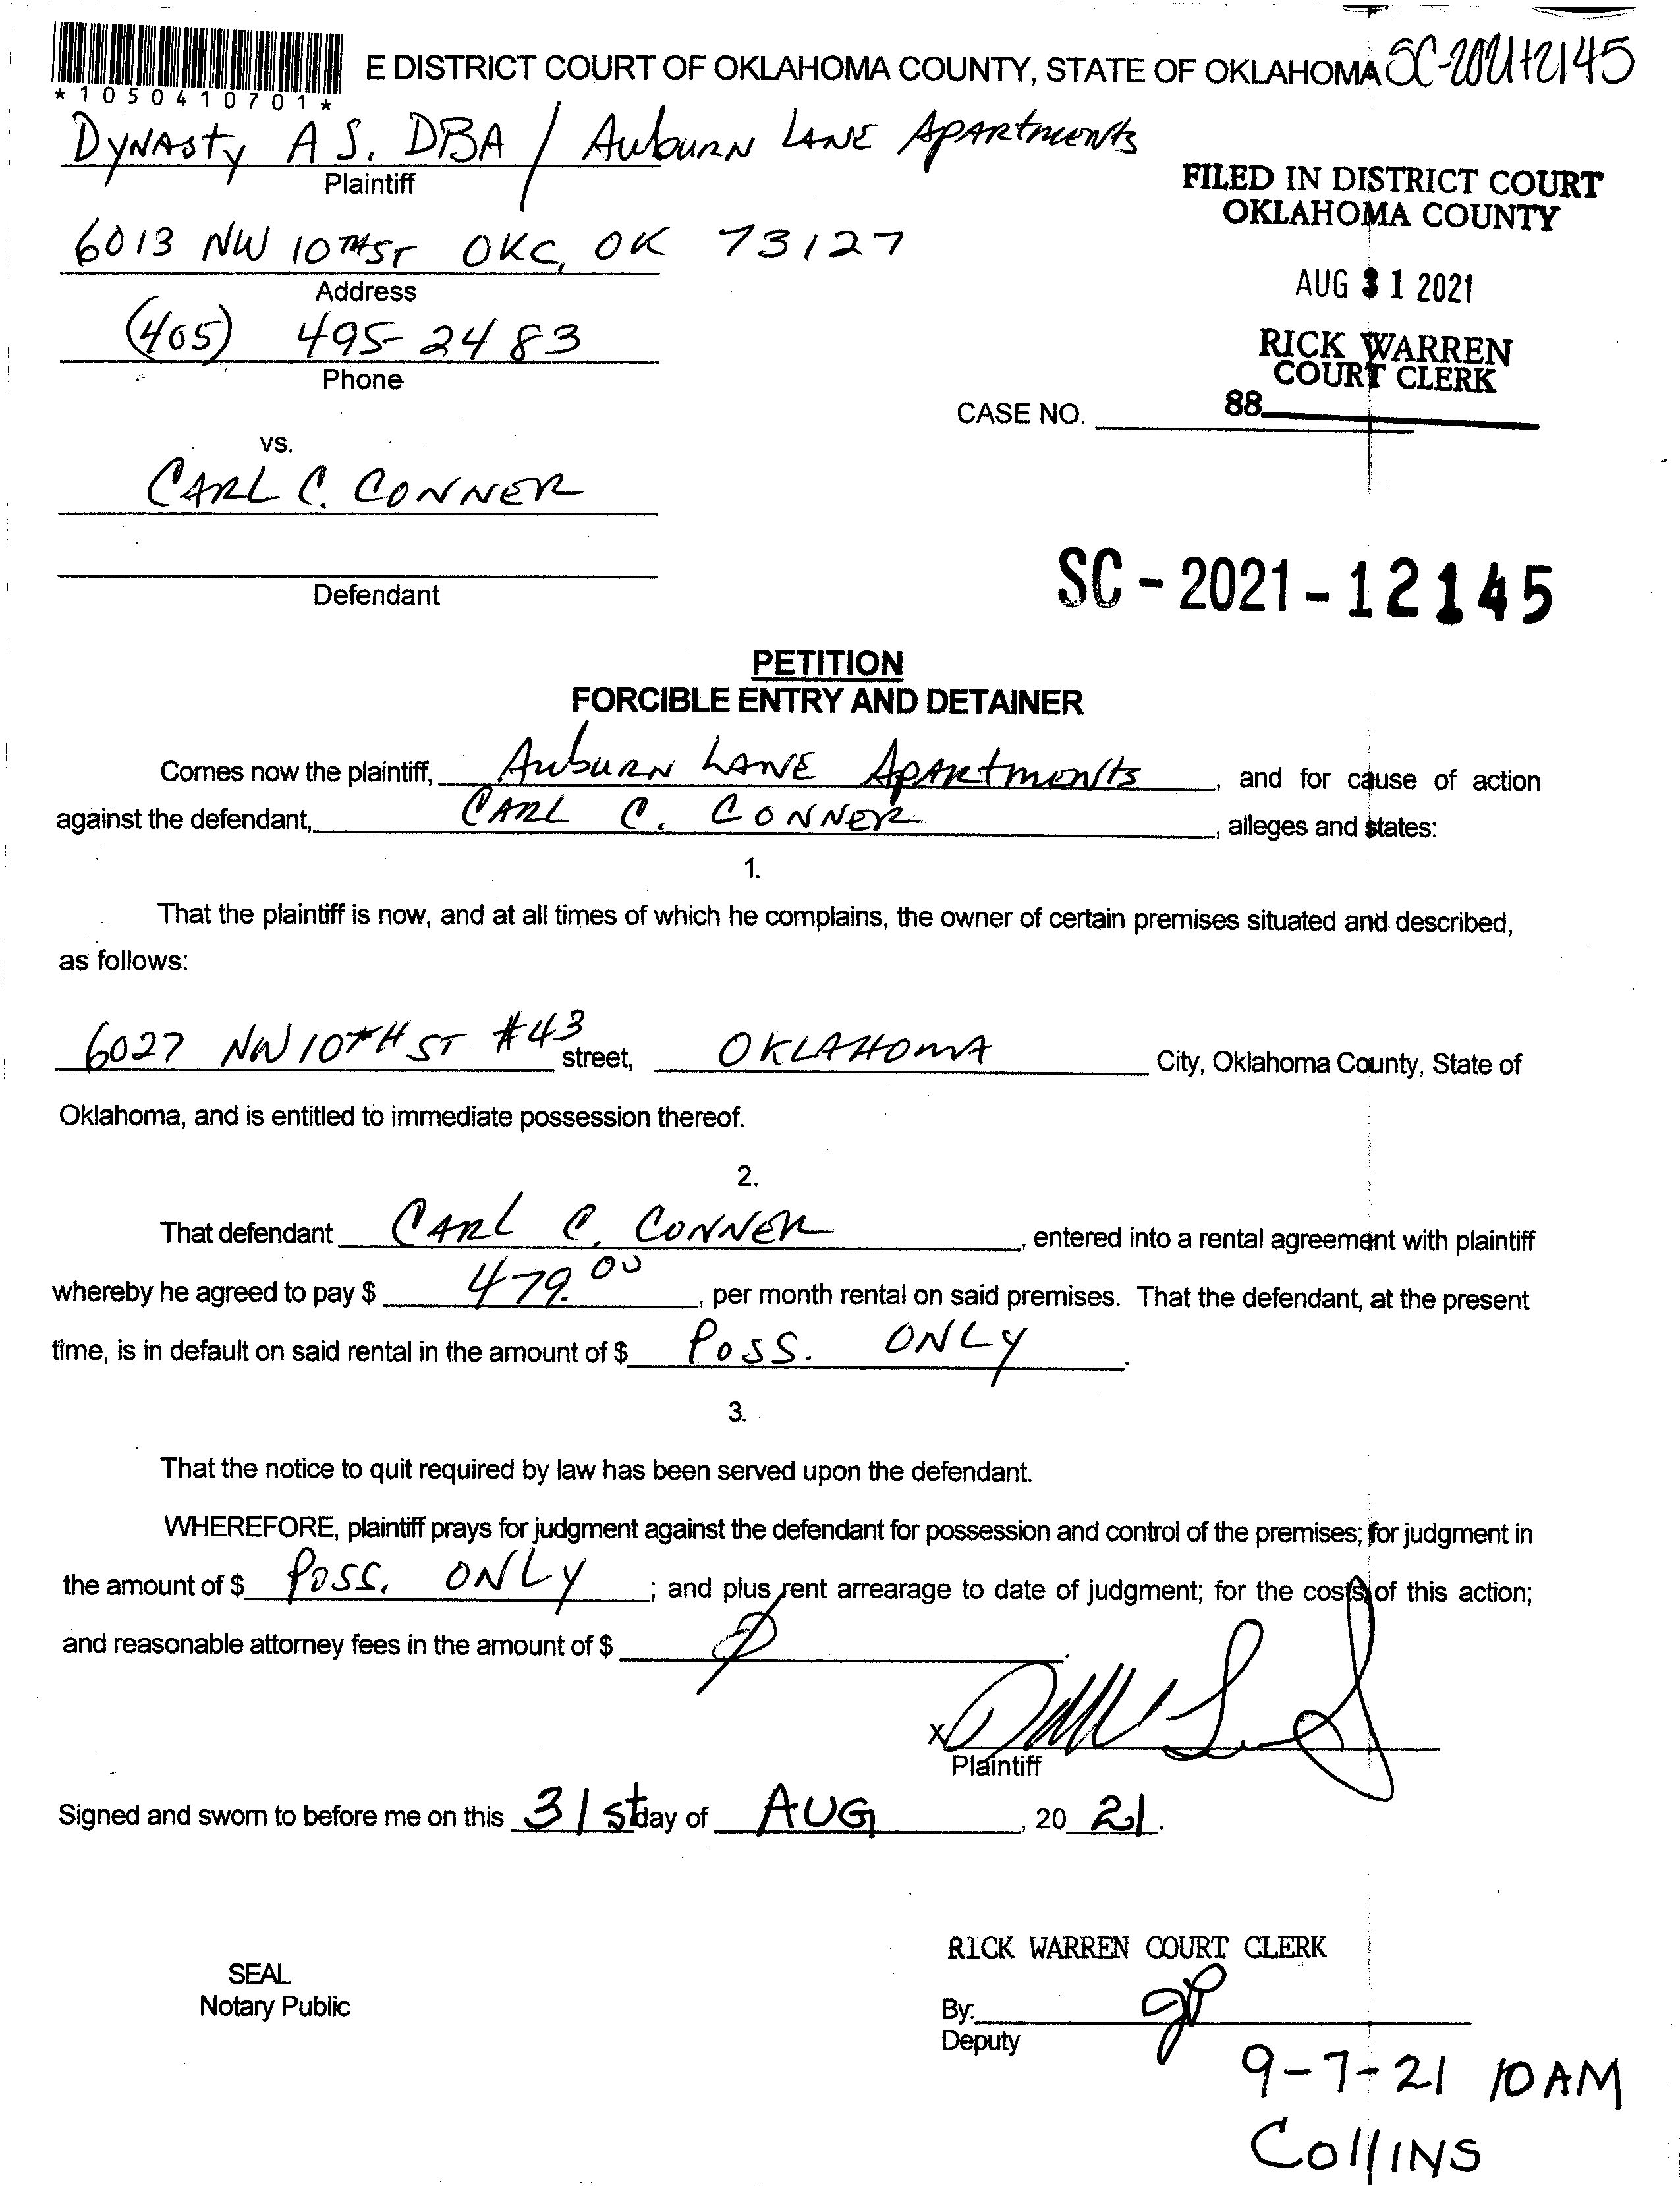 E DISTRICT COURT OF OKLAHOMA COUNTY, STATE OF OKLAHOMA SC-2021-12145
*1050410701*
DYNASTY A S. DBA / AUBURN LANE APARTMENTS
Plaintiff
FILED IN DISTRICT COURT
OKLAHOMA COUNTY
6013 NW 10TH ST OKC, OK 73127
Address
AUG 31 2021
(405) 495-2483
Phone
RICK WARREN
COURT CLERK
CASE NO. 88
vs.
CARL C. CONNER
Defendant
SC-2021-12145
PETITION
FORCIBLE ENTRY AND DETAINER
Comes now the plaintiff, AUBURN LANE APARTMENTS, and for cause of action
against the defendant, CARL C. CONNER, alleges and states:
1.
That the plaintiff is now, and at all times of which he complains, the owner of certain premises situated and described,
as follows:
6027 NW 10TH ST #43 street, OKLAHOMA City, Oklahoma County, State of
Oklahoma, and is entitled to immediate possession thereof.
2.
That defendant CARL C. CONNER, entered into a rental agreement with plaintiff
whereby he agreed to pay $ 479.00, per month rental on said premises. That the defendant, at the present
time, is in default on said rental in the amount of $ POSS. ONLY.
3.
That the notice to quit required by law has been served upon the defendant.
WHEREFORE, plaintiff prays for judgment against the defendant for possession and control of the premises; for judgment in
the amount of $ POSS. ONLY; and plus rent arrearage to date of judgment; for the costs of this action;
and reasonable attorney fees in the amount of $ ∅.
X
Plaintiff
Signed and sworn to before me on this 31st day of AUG, 20 21.
RICK WARREN COURT CLERK
SEAL
Notary Public
By:
Deputy
9-7-21 10AM
Collins